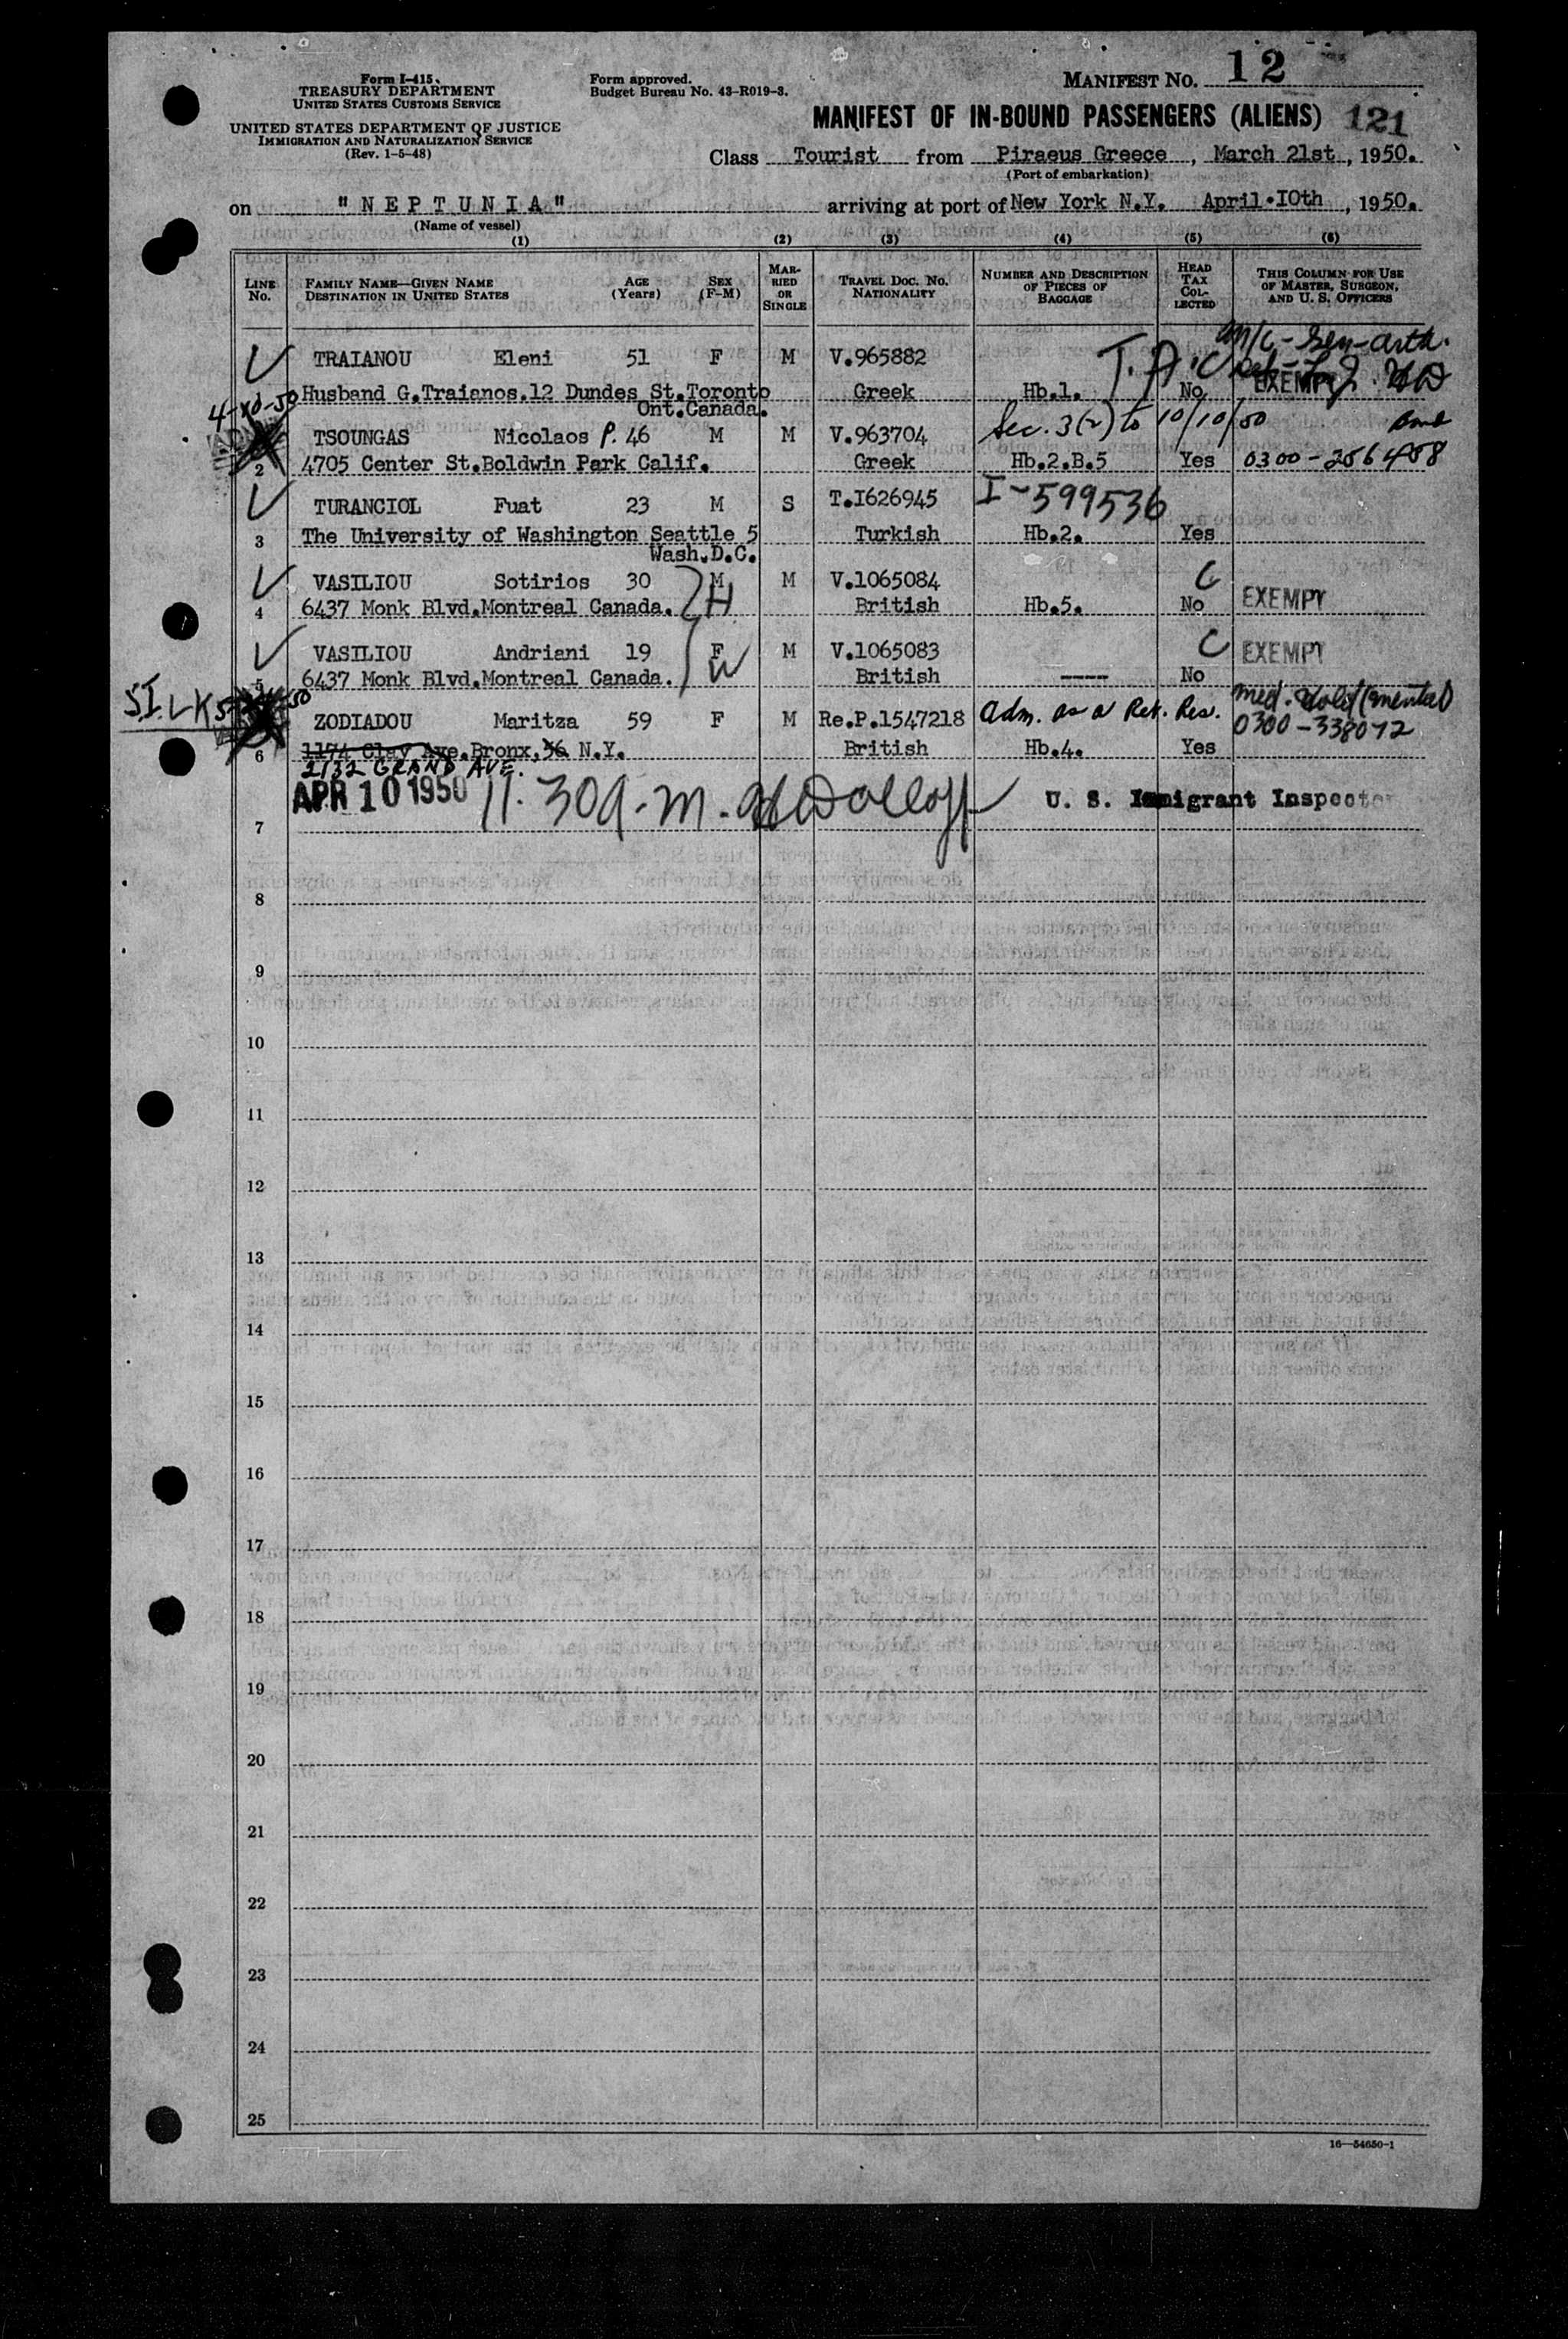 Form I-415
TREASURY DEPARTMENT
UNITED STATES CUSTOMS SERVICE
UNITED STATES DEPARTMENT OF JUSTICE
IMMIGRATION AND NATURALIZATION SERVICE
(Rev. 1-5-48)
Form approved.
Budget Bureau No. 43-R019-3.
MANIFEST NO. 12
MANIFEST OF IN-BOUND PASSENGERS (ALIENS) 121
Class Tourist from Piraeus Greece, March 21st, 1950.
(Port of embarkation)
on "NEPTUNIA" arriving at port of New York N.Y. April.10th, 1950.
(Name of vessel)
(1) (2) (3) (4) (5) (6)
LINE No. FAMILY NAME—GIVEN NAME DESTINATION IN UNITED STATES AGE (Years) SEX (F-M) MARRIED OR SINGLE TRAVEL DOC. NO. NATIONALITY NUMBER AND DESCRIPTION OF PIECES OF BAGGAGE HEAD TAX COLLECTED THIS COLUMN FOR USE OF MASTER, SURGEON, AND U. S. OFFICERS
M/C-Sen-arth.
TRAIANOU Eleni 51 F M V.965882 T.A.
Husband G.Traianos.12 Dundes St.Toronto Greek Hb.1. No EXEMPT
Ont.Canada.
4-10-50
Sec. 3(2) to 10/10/50
TSOUNGAS Nicolaos P. 46 M M V.963704
2 4705 Center St.Boldwin Park Calif. Greek Hb.2.B.5 Yes 0300-256458
TURANCIOL Fuat 23 M S T.I626945 I-599536
3 The University of Washington Seattle 5 Turkish Hb.2. Yes
Wash.D.C.
VASILIOU Sotirios 30 M M V.1065084 C
4 6437 Monk Blvd.Montreal Canada. H British Hb.5. No EXEMPT
VASILIOU Andriani 19 F M V.1065083 C EXEMPT
5 6437 Monk Blvd.Montreal Canada. W British ---- No
S.I. Med. Hold (mental)
ZODIADOU Maritza 59 F M Re.P.1547218 Adm. as a Ret. Res. 0300-338072
6 1174 Clay Ave.Bronx,56 N.Y. British Hb.4. Yes
2132 GRAND AVE.
APR 10 1950 11.30a.m. U. S. Immigrant Inspector
7
8
9
10
11
12
13
14
15
16
17
18
19
20
21
22
23
24
25
16—54650-1